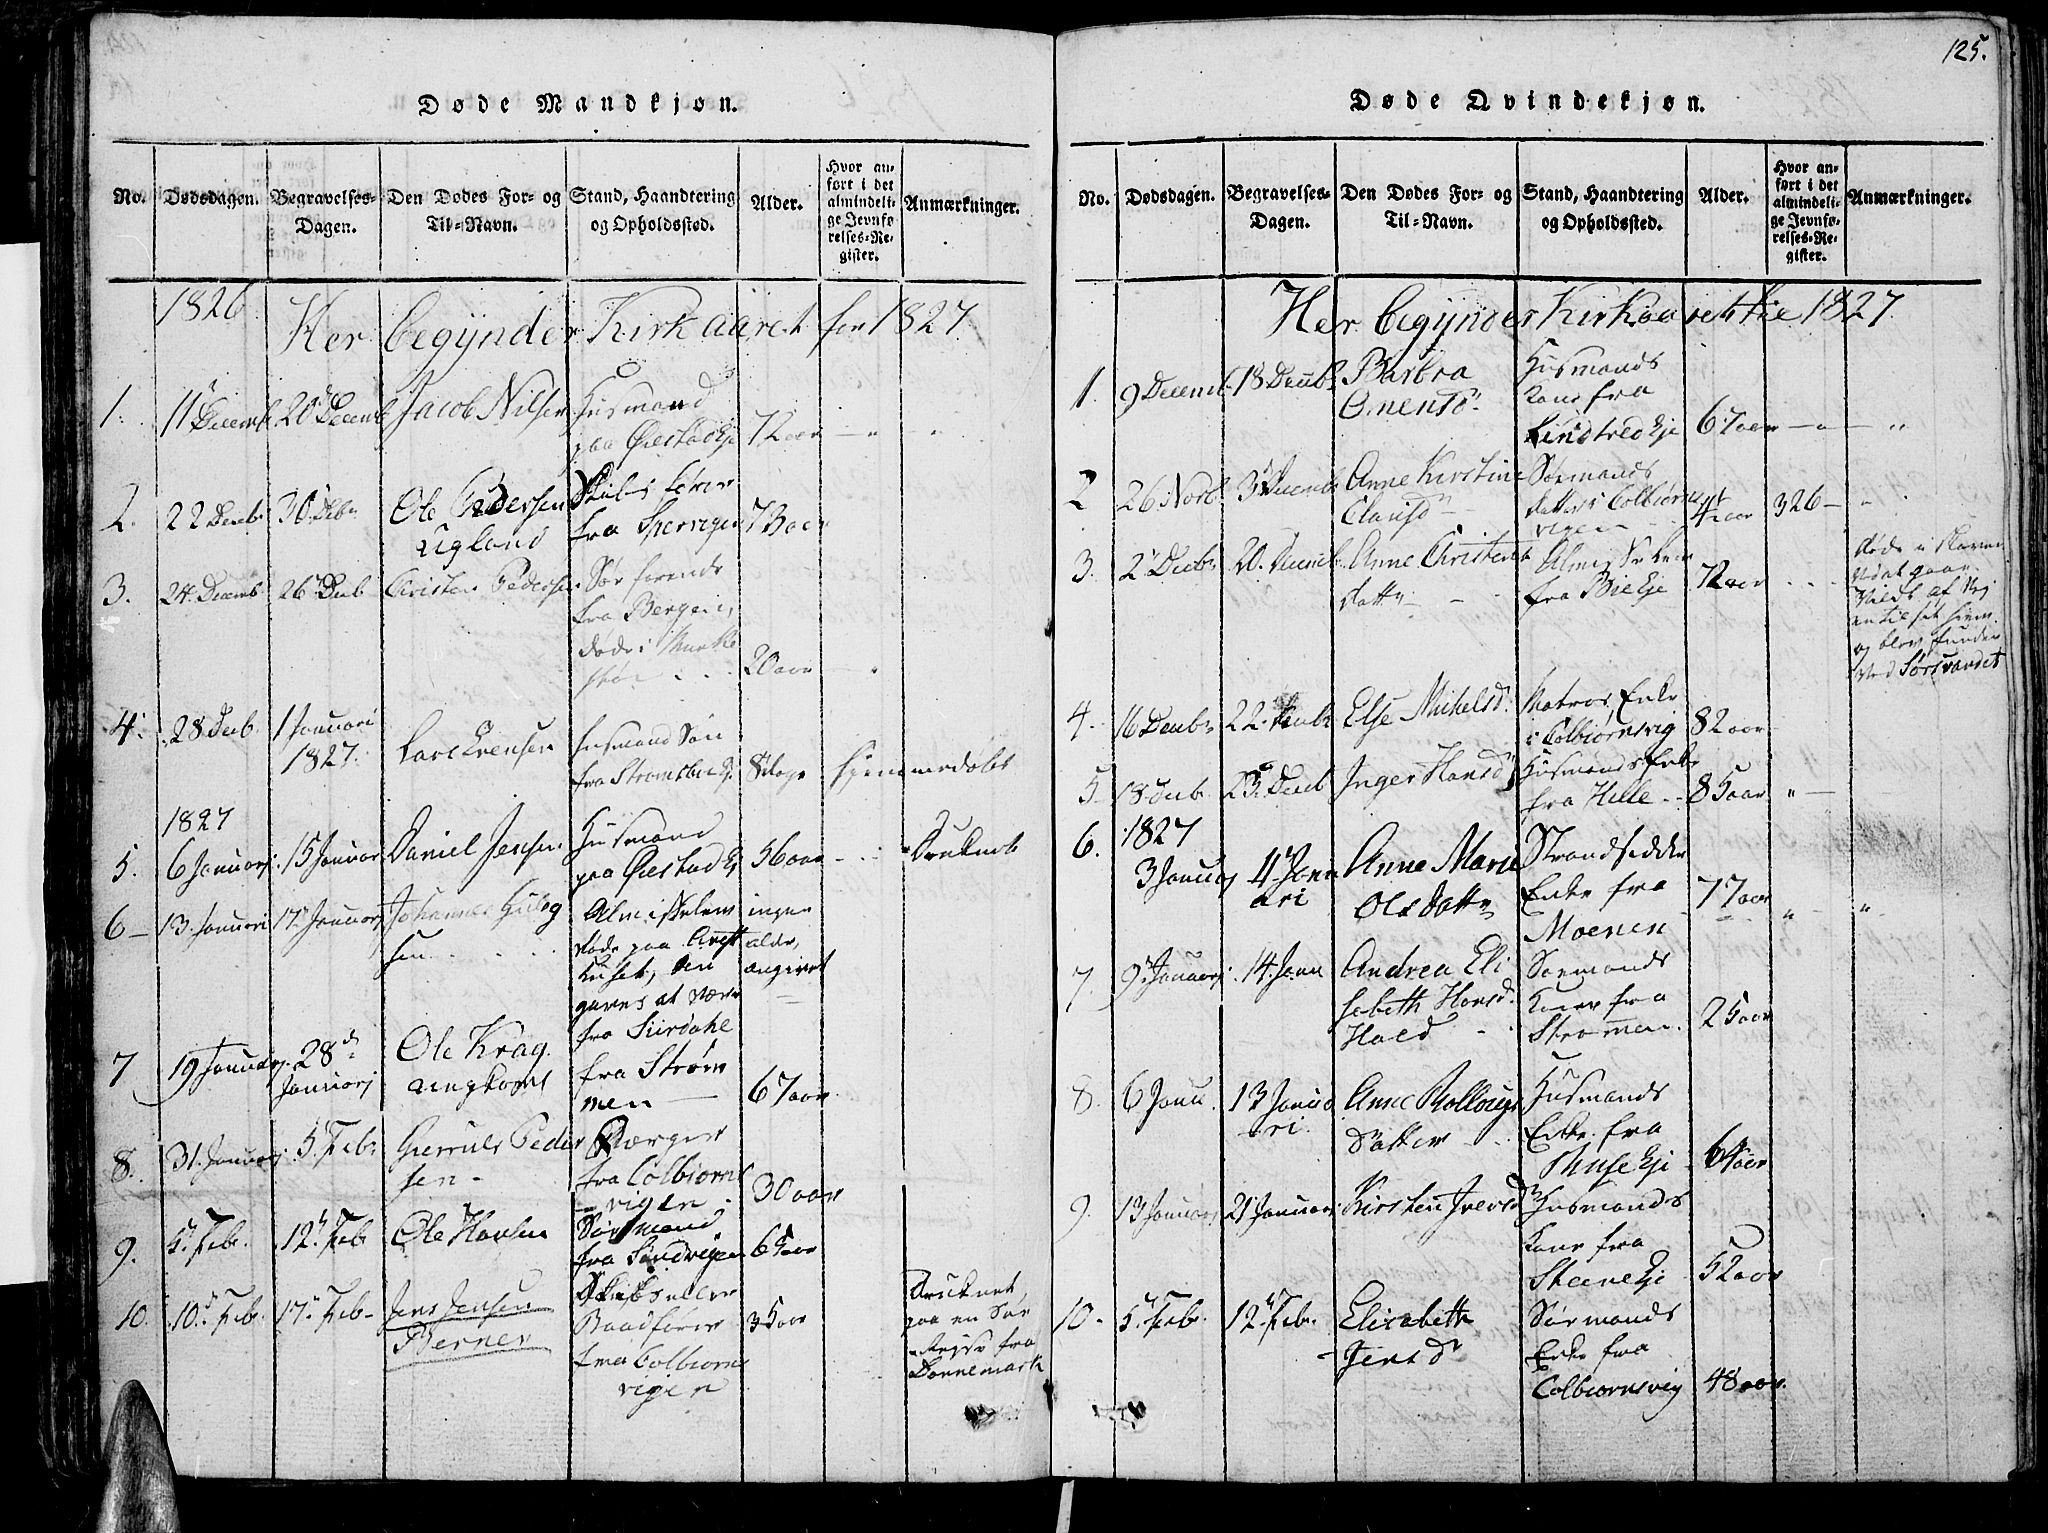 125.
Døde Mandkjøn.
No. Dødsdagen. Begravelses-Dagen. Den Dødes For- og Til-Navn. Stand, Haandtering og Opholdssted. Alder. Hvor anført i det almindelige Jevnførelses-Register. Anmærkninger.
1826
Her begÿnder Kirkaaret for 1827
1. 11 Decemb 20 Decemb Jacob Nilsen Husmand
paa Øiestad Eje 72 aar
2. 22 Decbr 30 Decbr Ole Pedersen
Ugland
fra Spervigen 73 aar
3. 24 Decemb 26 Decb Christen Pedersen Sør farende
fra Bergen,
døde i
20 aar
4. 28 Decb 1 Januari
1827. Lars Evensen Husmand Søn
fra Strømsbu Ej. 8 Dage hjemmedøbt
1827
5. 6 Januari 15 Januar Daniel Jensen Husmand
paa Øiestad Ej 56 aar Druknet
6 13 Januari 17 Januarj Johannes
sen Almisselem ingen
døde paa alder,
angivet
fra Siirdahl
7 19 Januarj 28de
Januarj Ole Krag
ungkarl fra Strøm
men 67 aar
8. 31 Januarj 5 Febr Gierruls Peder
sen Borger
fra Colbiørns
vigen 30 aar
9. 5 Febr. 12 Feb Ole Hansen Sørmand
fra Sandvigen 65 aar
10. 10 Febr. 17 Feb Jens Jensen
Berner Skibs eller
Baadfører
fra Colbiørns
vigen 35 aar Druknet
paa en Sør
Rejse fra
Dannemark
Døde Qvindekjøn.
No. Dødsdagen. Begravelses-Dagen. Den Dødes For- og Til-Navn. Stand, Haandtering og Opholdssted. Alder. Hvor anført i det almindelige Jevnførelses-Register. Anmærkninger.
Her begÿnder Kirkaaret for 1827
1. 9 Decemb 18 Decbr Barbra
Omensd. Husmands
Kone fra
Lindtved Eje 67 aar
2 26 Novb. 3 Decemb Anne Kirstine
Clausd Sørmands
datter i Colbiørns
vigen 4 aar 326
3. 2 Decbr 20 Decemb Anne Christens
datter
fra Bie Eje 72 aar døde i Skoven
og blev funden
ved Sørsvandet
4. 16 Decbr 22 Decbr Else Mikelsd. Matros Enke
i Colbiørnsvig 82 aar
5 18 Decb 23 Decb Inger Hansd Husmands Enke
fra Hille 85 aar
6. 1827
3 Januarj 4 Janu
ari Anne Marie
Olsdatter Strandsidder
Enke fra
Moenen 77 aar
7 9 Januarj 14 Janu Andrea Eli
sabeth Hansd.
Hald Sørmands
Kone fra
Strømmen. 25 aar
8. 6 Janu. 13 Janua
ri. Anne
Datter Husmands
Enke fra
Eje 64 aar
9. 13 Januarj 21 Januarj Kirsten Iversd Husmands
Kone fra
Steene Eje 52 aar
10. 5 Febr. 12 Feb. Elisabeth
Jensd Sørmands
Enke fra
Colbiørnsvig 48 aar.